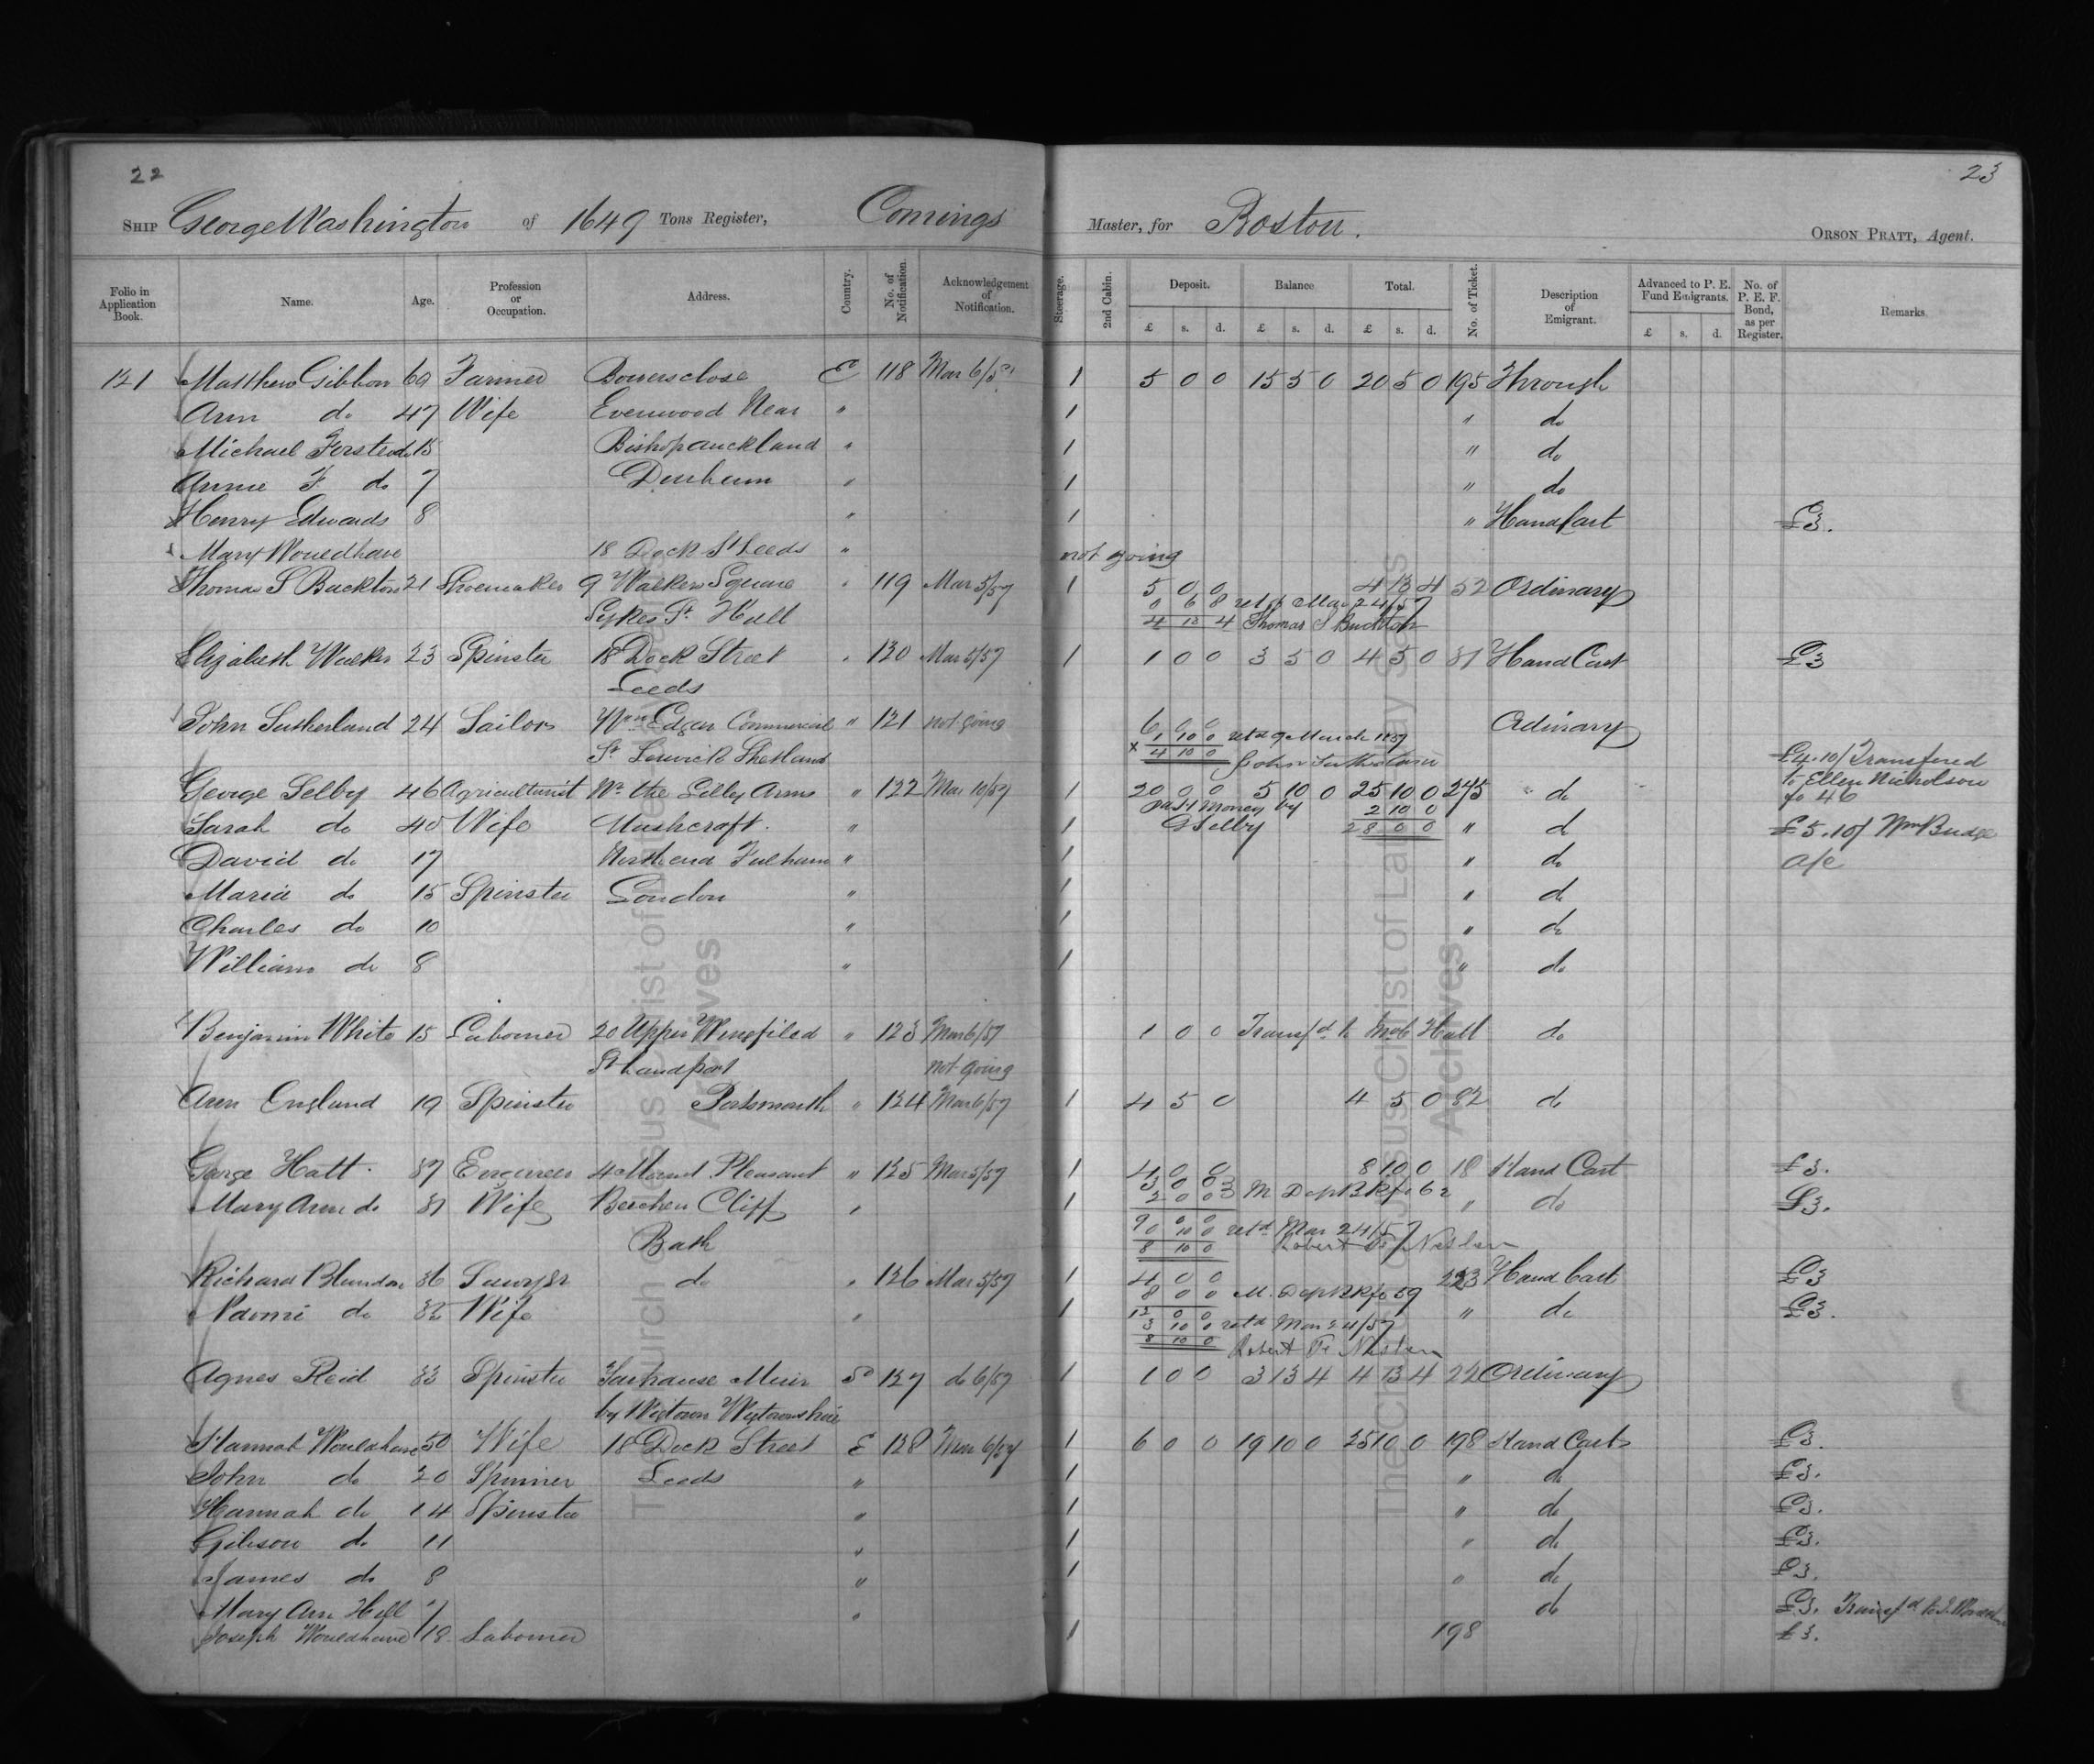 22
23
SHIP George Washington of 1649 Tons Register, Comings Master, for Boston. ORSON PRATT, Agent.
Folio in Application Book. Name. Age. Profession or Occupation. Address. Country. No. of Notification. Acknowledgement of Notification. Steerage. 2nd Cabin. Deposit. Balance Total. No. of Ticket. Description of Emigrant. Advanced to P. E. Fund Emigrants. No. of P. E. F. Bond, as per Register. Remarks.
£ s. d. £ s. d. £ s. d. £ s. d.
121 Matthew Gibbon 60 Farmer Bowersclose E 118 Mar 6/57 1 5 0 0 15 5 0 20 5 0 195 Through
Ann do 47 Wife Evenwood Near " 1 " do
Michael Forster do 15 Bishopauckland " 1 " do
Annie F. do 7 Durham " 1 " do
Henry Edwards 8 " 1 " Hand Cart £3.
Mary Wouldhave 18 Dock St Leeds " not going
Thomas S Buckton 21 Shoemaker 9 Walker Square " 119 Mar 5/57 1 5 0 0 4 13 4 52 Ordinary
Sykes St. Hull 0 6 8 retd Mar 24/57
4 13 4 Thomas S Buckton
Elizabeth Walker 23 Spinster 18 Dock Street " 120 Mar 5/57 1 1 0 0 3 5 0 4 5 0 81 Hand Cart £3
Leeds
John Sutherland 24 Sailor Wm Edgar Commercial " 121 not going 6 0 0 Ordinary
St. Lerwick Shetland 1 10 0 retd 9 March 1857
x 4 10 0 John Sutherland £4.10/ Transfered
to Ellen Nicholson
fo 46
George Selby 46 Agriculturist Nr the Lilly Arms " 122 Mar 10/57 1 20 0 0 5 10 0 25 10 0 245 " do
Money by 2 10 0
Sarah do 40 Wife " 1 G Selby 28 0 0 " do £5.10/ Wm Budge
David do 17 North end Fulham " 1 " do a/c
Maria do 15 Spinster London " 1 " do
Charles do 10 " 1 " do
William do 8 " 1 " do
Benjamin White 15 Labourer 20 Upper " 123 Mar 6/57 1 0 0 Transfd to Hall do
St Landport not going
Ann England 19 Spinster Portsmouth " 124 Mar 6/57 1 4 5 0 4 5 0 82 do
George Hatt 37 Engineer 4 Mount Pleasant " 125 Mar 5/57 1 4 0 0 8 10 0 18 Hand Cart £3.
3 0 0
Mary Ann do 31 Wife Beechen Cliff " 1 2 0 0 M Dep B K fo 62 " do £3.
9 0 0
Bath 10 0 retd Mar 24/57
8 10 0 Robert
Richard Blundon 36 Sawyer do " 126 Mar 5/57 1 4 0 0 223 Hand Cart £3
8 0 0 M. Dep B K fo 59
Naomi do 32 Wife " 1 12 0 0 " do £3.
3 10 0 retd Mar 24/57
8 10 0 Robert
Agnes Reid 33 Spinster Muir S 127 do 6/57 1 1 0 0 3 13 4 4 13 4 22 Ordinary
by Wigtown Wigtownshire
Hannah Wouldhave 50 Wife 18 Dock Street E 128 Mar 6/57 1 6 0 0 19 10 0 25 10 0 198 Hand Cart £3.
John do 20 Spinner Leeds " 1 " do £3.
Hannah do 14 Spinster " 1 " do £3.
Gibson do 11 " 1 " do £3.
James do 8 " 1 " do £3.
Mary Ann Hill 7 " do £3. Transfd to J. Wouldhave
Joseph Wouldhave 18 Labourer 1 198 £3.